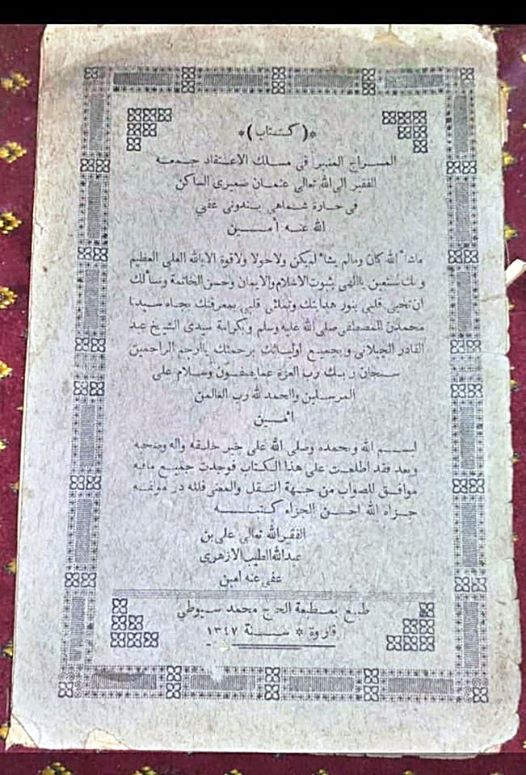 *( كتاب )*
السراج المنير فى مسلك الاعتقاد جمعه
الفقير الى الله تعالى عثمان ضميرى الساكن
فى حارة شماهى بندونى عفي
الله عنه آمــين
ماشاء الله كان ومالم يشاء لميكن ولاحولا ولاقوة الابالله العلى العظيم
وبك نستعين ياالهى بثبوت الاسلام والايمان وحسن الخاتمة وسألك
ان تحيى قلبى بنور هدايتك وتملئ قلبى بمعرفتك بجاه سيدنا
محمدن المصطفى صلى الله عليه وسلم وبكرامة سيدى الشيخ عبد
القادر الجيلانى وبجميع اوليائك برحمتك ياارحم الراحمين
سبحان ربك رب العزة عما يصفون وسلام على
المرسلين والحمد لله رب العالمن
امــين
بســم الله وبحمده وصلى الله على خير خليقه وآله وصحبه
وبعد فقد اطلعت على هذا الكتاب فوجدت جميع مافيه
موافق للصواب من جهة النقل والمعنى فلله در مؤلفه
جزاه الله احسن الجزاء كتبــه
الفقير لله تعالى على بن
عبدالله الطيب الازهرى
عفى عنه امين
طبع بمطبعة الحج محمد سيوطي
فاروة * سنة ١٣٤٧